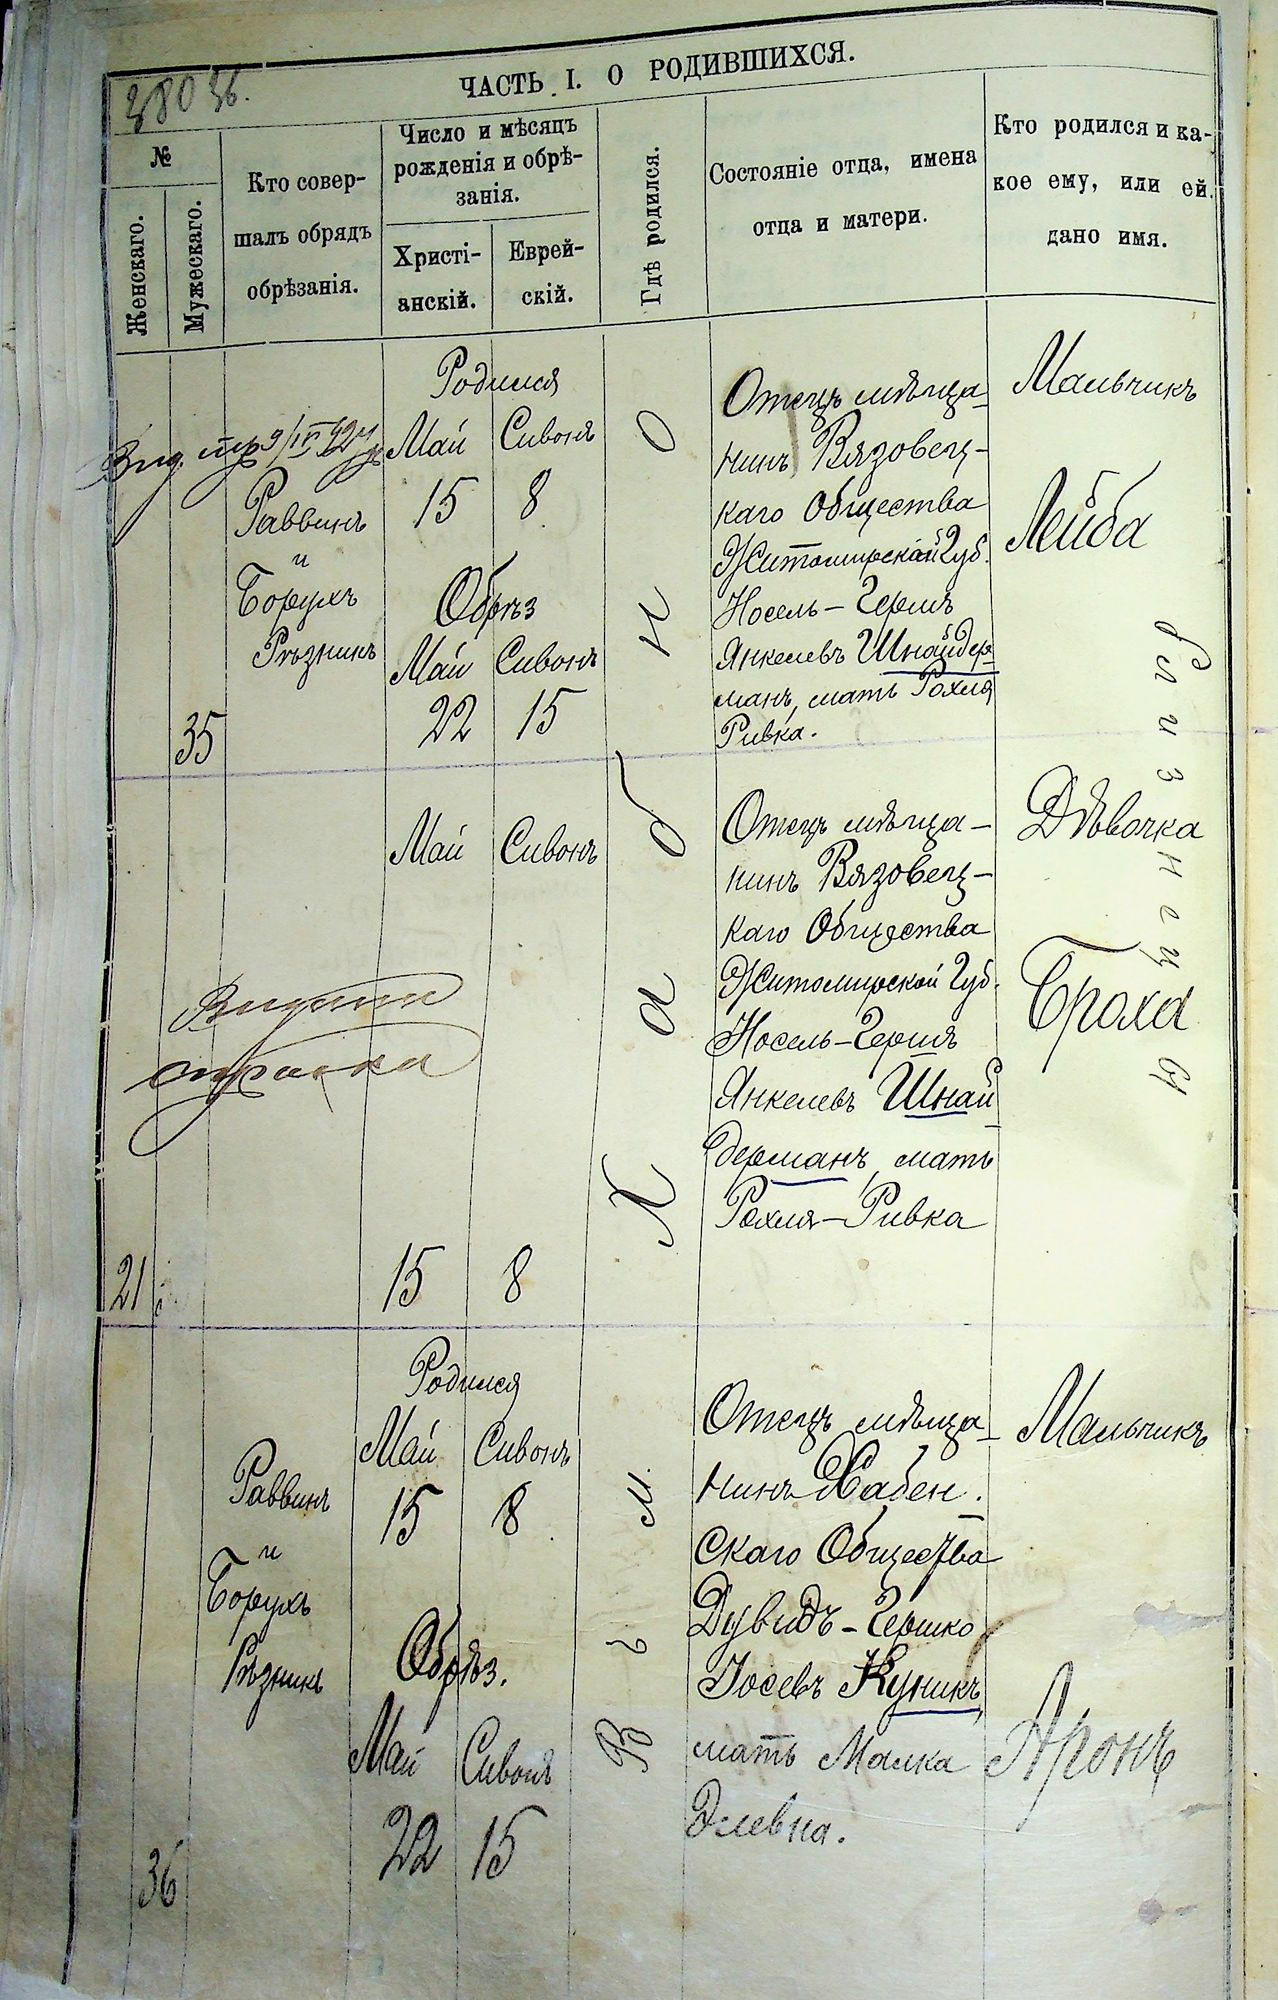 380 36.
ЧАСТЬ I. О РОДИВШИХСЯ.
№
Женскаго.
Мужескаго.
Кто совер-
шалъ обрядъ
обрѣзанія.
Число и мѣсяцъ
рожденія и обрѣ-
занія.
Христі-
анскій.
Еврей-
скій.
Гдѣ родился.
Состояніе отца, имена
отца и матери.
Кто родился и ка-
кое ему, или ей
дано имя.
35
Раввинъ
и
Борухъ
Рѣзникъ
Родился
Май Сивонъ
15 8
Обрѣз
Май Сивонъ
22 15
Отецъ мѣща-
нинъ Вязовец-
каго Общества
Житомирской Губ.
Носель-Гершъ
Янкелевъ Шнайдер-
манъ, мать Рохля
Ривка.
Мальчикъ
Лейба
Близнецы
21
Май Сивонъ
15 8
Отецъ мѣща-
нинъ Вязовец-
каго Общества
Житомирской Губ.
Носель-Гершъ
Янкелевъ Шнай-
дерманъ, мать
Рохля-Ривка
Дѣвочка
Броха
Въ м. Хабно
36
Раввинъ
и
Борухъ
Рѣзникъ
Родился
Май Сивонъ
15 8
Обрѣз.
Май Сивонъ
22 15
Отецъ мѣща-
нинъ Хабен-
скаго Общества
Дувидъ-Гершко
Іосевъ Куникъ,
мать Малка
Элевна.
Мальчикъ
Аронъ